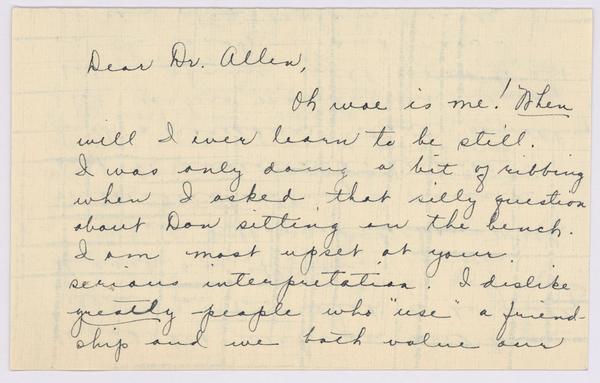 Dear Dr. Allen,
Oh woe is me! When
will I ever learn to be still.
I was only doing a bit of ribbing
when I asked that silly question
about Don sitting on the bench.
I am most upset at your
serious interpretation. I dislike
greatly people who "use" a friend-
ship and we both value our